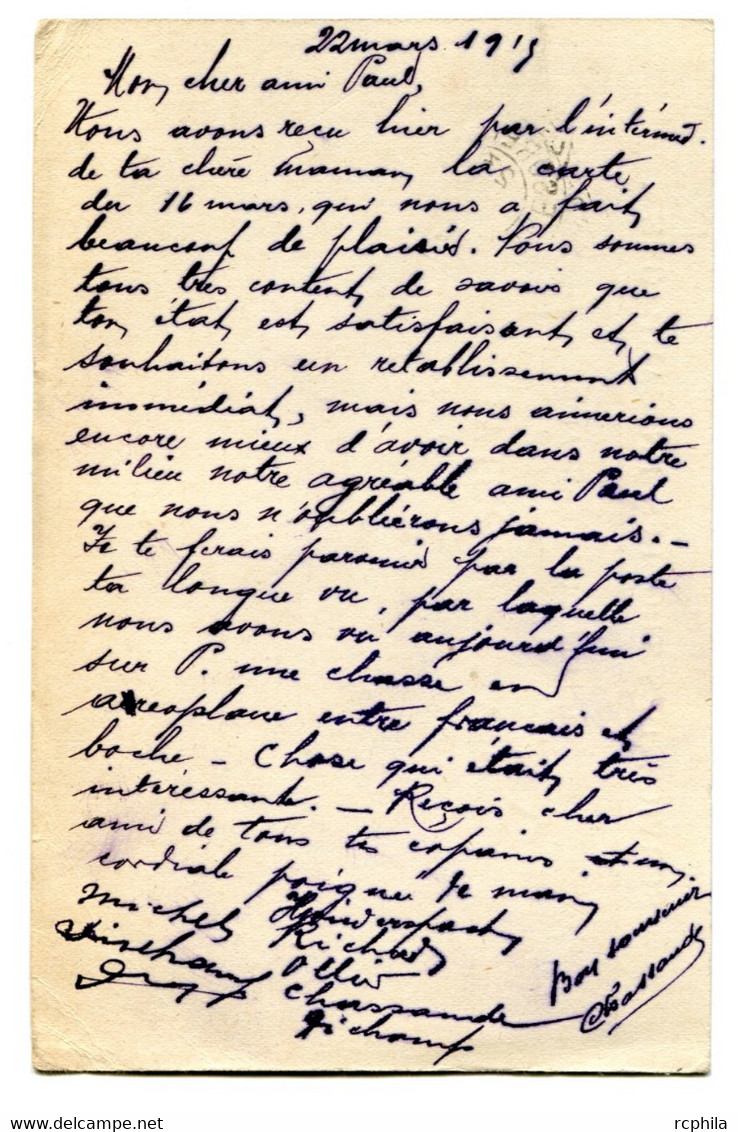 22 mars 1915
Mon cher ami Paul,
Nous avons reçu hier par l'intérméd.
de ta chére maman la carte
du 16 mars, qui nous a fait
beaucoup de plaisir. Nous sommes
tous très content de savoir que
ton état est satisfaisant et te
souhaitons un retablissement
immédiat, mais nous aimerions
encore mieux d'avoir dans notre
milieu notre agréable ami Paul
que nous n'oubliérons jamais. –
Je te ferais parvenir par la poste
ta longue vu, par laquelle
nous avons vu aujourd'hui
sur P. une chasse en
areoplane entre francais et
boche – Chose qui était très
intéressante. – Reçois cher
ami de tous tes copains
cordiale poigne de main
Michel
Richard
Otto
Chassande
Richamp
Bon souvenir
Chassande
rcphila
delcampe.net